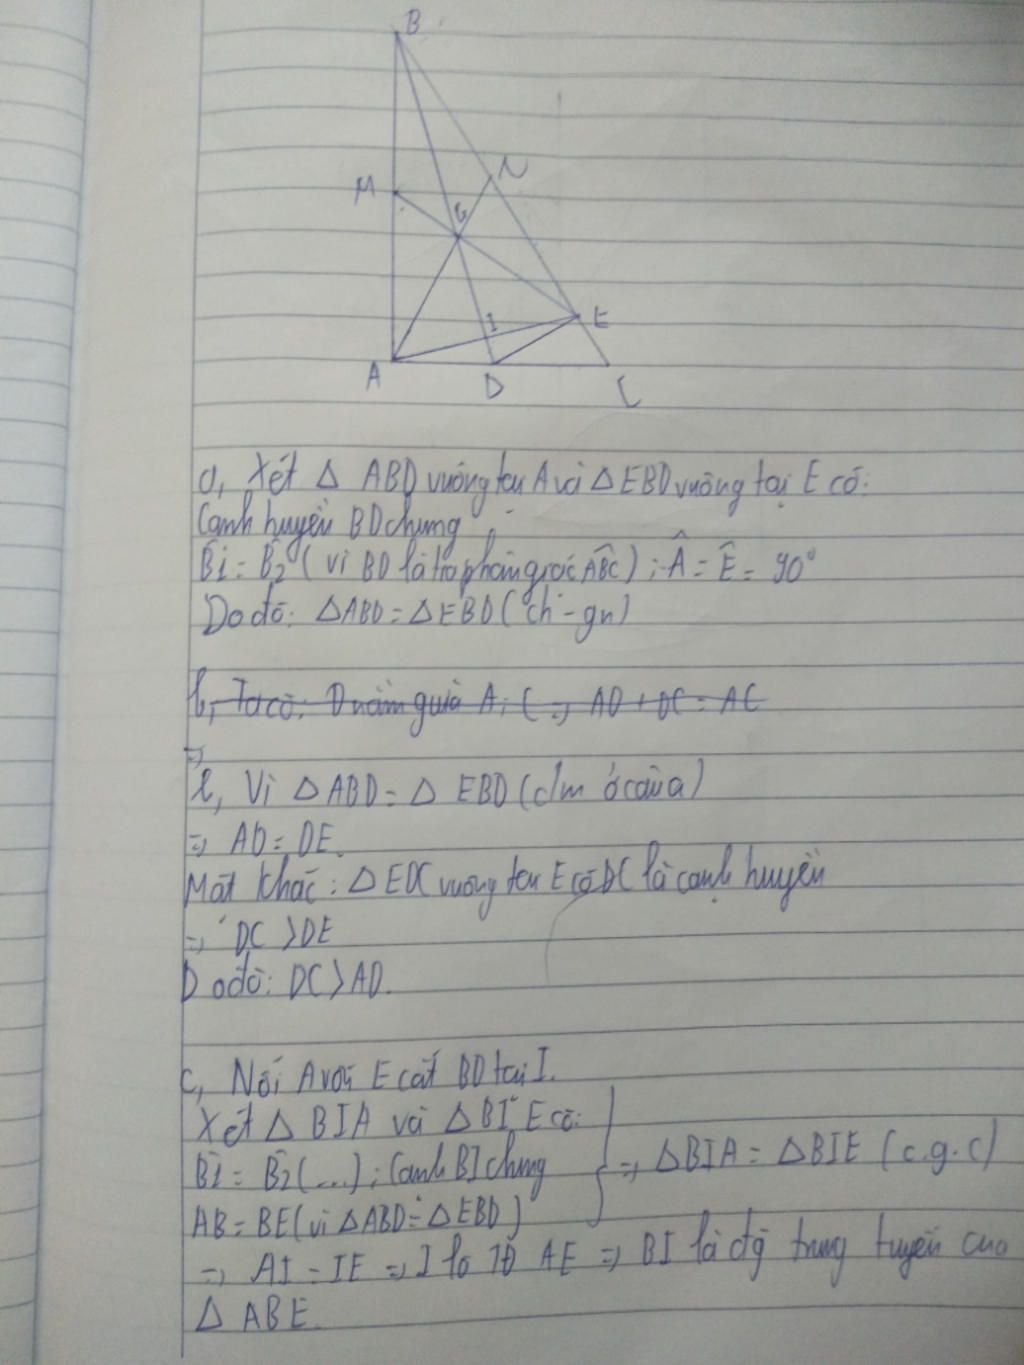 B
M
N
G
I
E
A
D
C
a, Xét Δ ABD vuông tại A và Δ EBD vuông tại E có:
Cạnh huyền BD chung
B̂1 = B̂2 (vì BD là tia phân giác ABC); Â = Ê = 90°
Do đó: ΔABD = ΔEBD (ch - gn)
b, Ta có: D nằm giữa A; C => AD + DC = AC
=>
b, Vì Δ ABD = Δ EBD (c/m ở câu a)
=> AD = DE.
Mặt khác: Δ EDC vuông tại E có DC là cạnh huyền
=> DC > DE
Do đó: DC > AD.
c, Nối A với E cắt BD tại I.
Xét Δ BIA và Δ BIE có:
B̂1 = B̂2 (...); Cạnh BI chung
AB = BE (vì ΔABD = ΔEBD)
=> ΔBIA = ΔBIE (c.g.c)
=> AI = IE => I là TĐ AE => BI là đg trung tuyến của
Δ ABE.